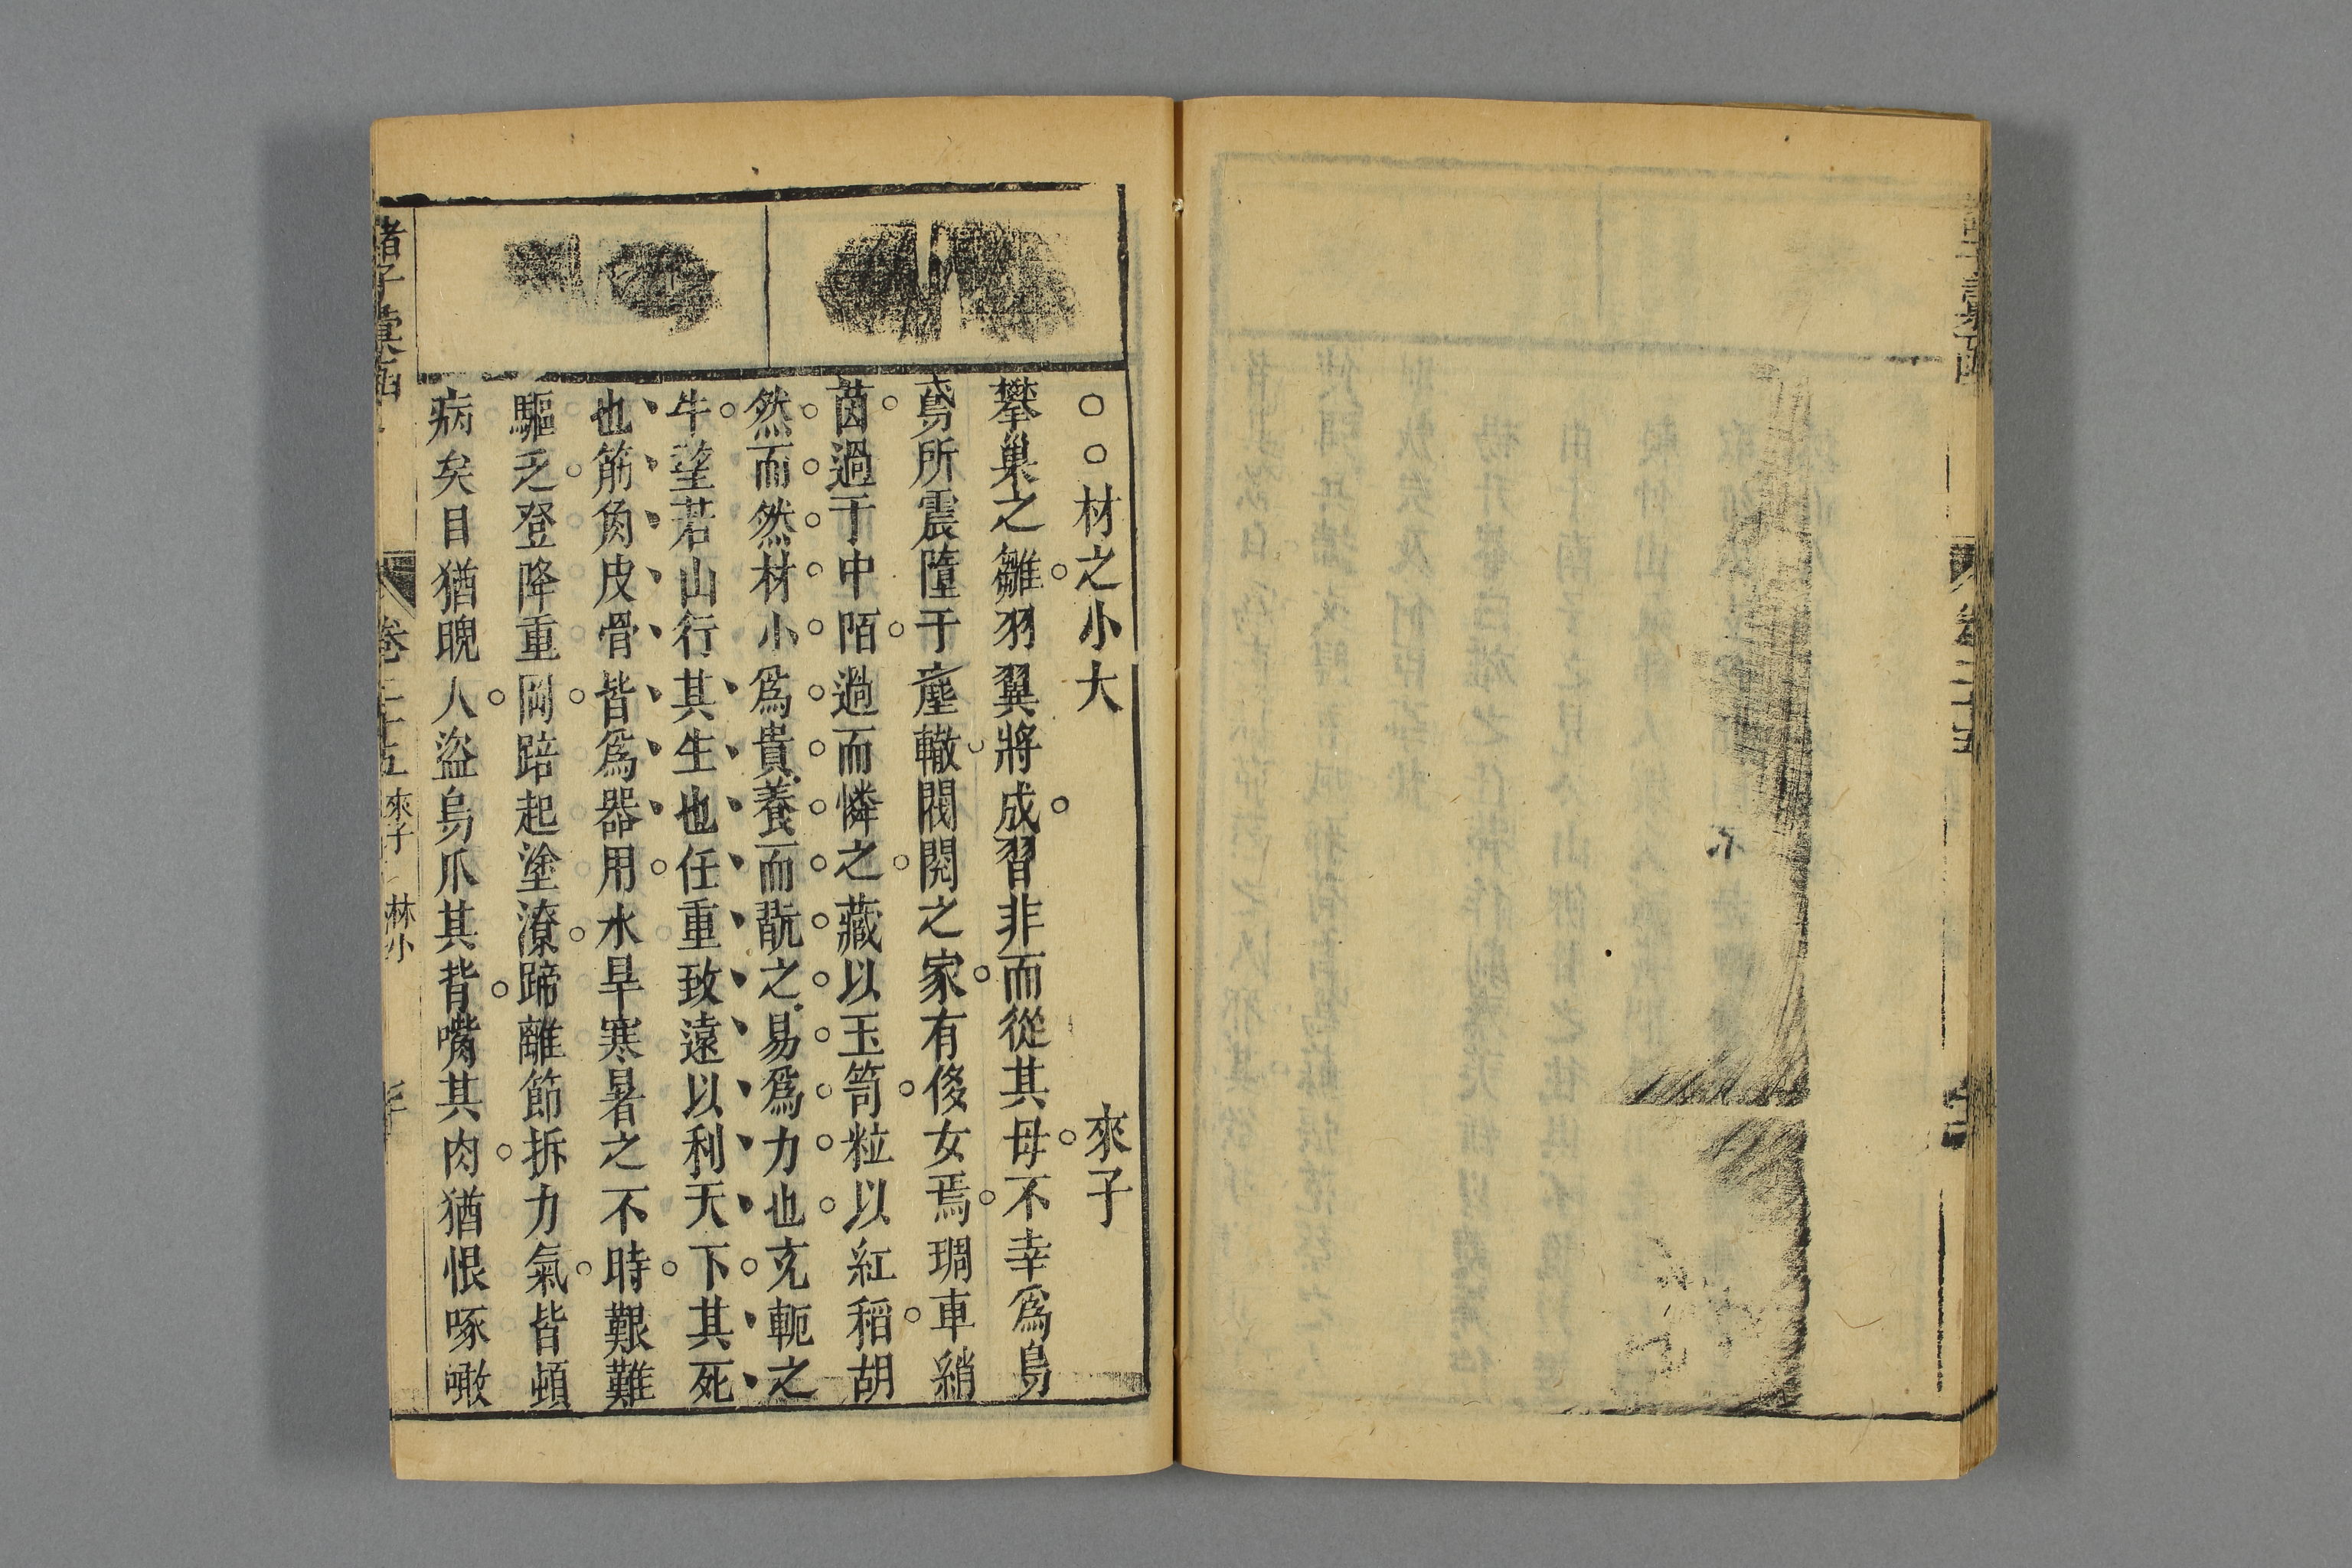 ○○材之小大 來子
攀巢之雛羽翼將成習非而從其母不幸爲烏
鳶所震墮于塵轍閥閱之家有㑺女焉琱車綃
茵過于中陌過而憐之藏以玉笥粒以紅稻胡
然而然材小爲貴養而翫之易爲力也充軛之
牛望若山行其生也任重致遠以利天下其死
也筋角皮骨皆爲器用水旱寒暑之不時艱難
驅乏登降重岡踣起塗潦蹄離節拆力氣皆頓
病矣目猶睨人盜烏爪其背嘴其肉猶恨啄噉
諸子彙函 卷二十五 來子
卷二十五
不